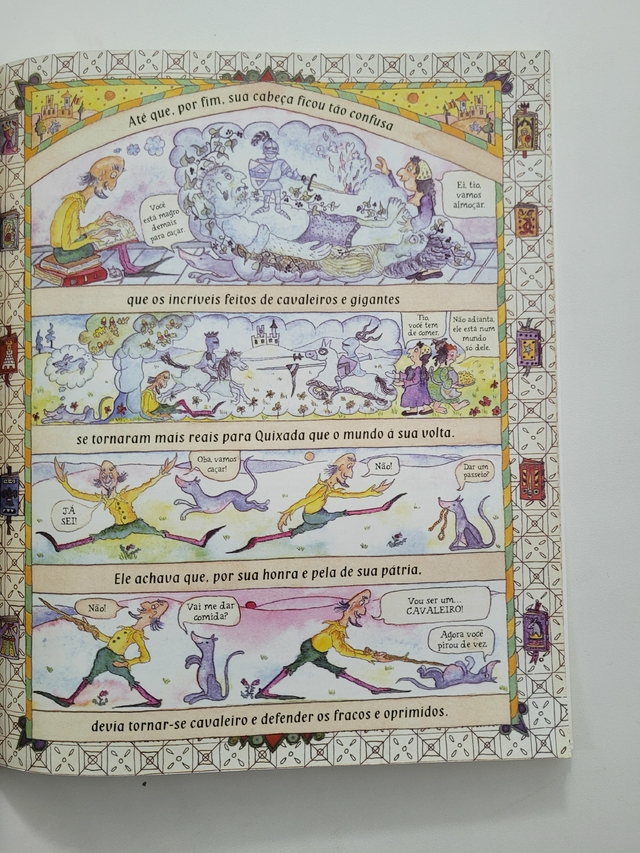 Até que, por fim, sua cabeça ficou tão confusa
Você
está magro
demais
para caçar.
Ei, tio,
vamos
almoçar.
que os incríveis feitos de cavaleiros e gigantes
Tio,
você tem
de comer.
Não adianta,
ele está num
mundo
só dele.
se tornaram mais reais para Quixada que o mundo à sua volta.
JÁ
SEI!
Oba, vamos
caçar!
Não!
Dar um
passeio?
Ele achava que, por sua honra e pela de sua pátria,
Não!
Vai me dar
comida?
Vou ser um...
CAVALEIRO!
Agora você
pirou de vez.
devia tornar-se cavaleiro e defender os fracos e oprimidos.